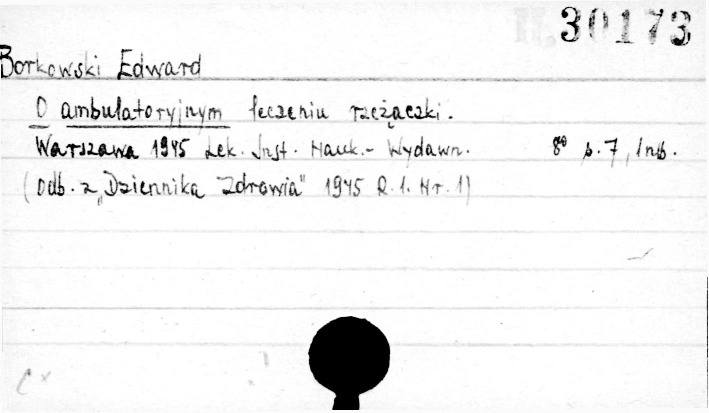 30173
Borkowski Edward
O ambulatoryjnym leczeniu rzeżączki.
Warszawa 1945 Lek. Inst. Nauk.- Wydawn. 8° s. 7, 1 nlb.
(Odb. z „Dziennika Zdrowia" 1945 R. 1. Nr. 1)